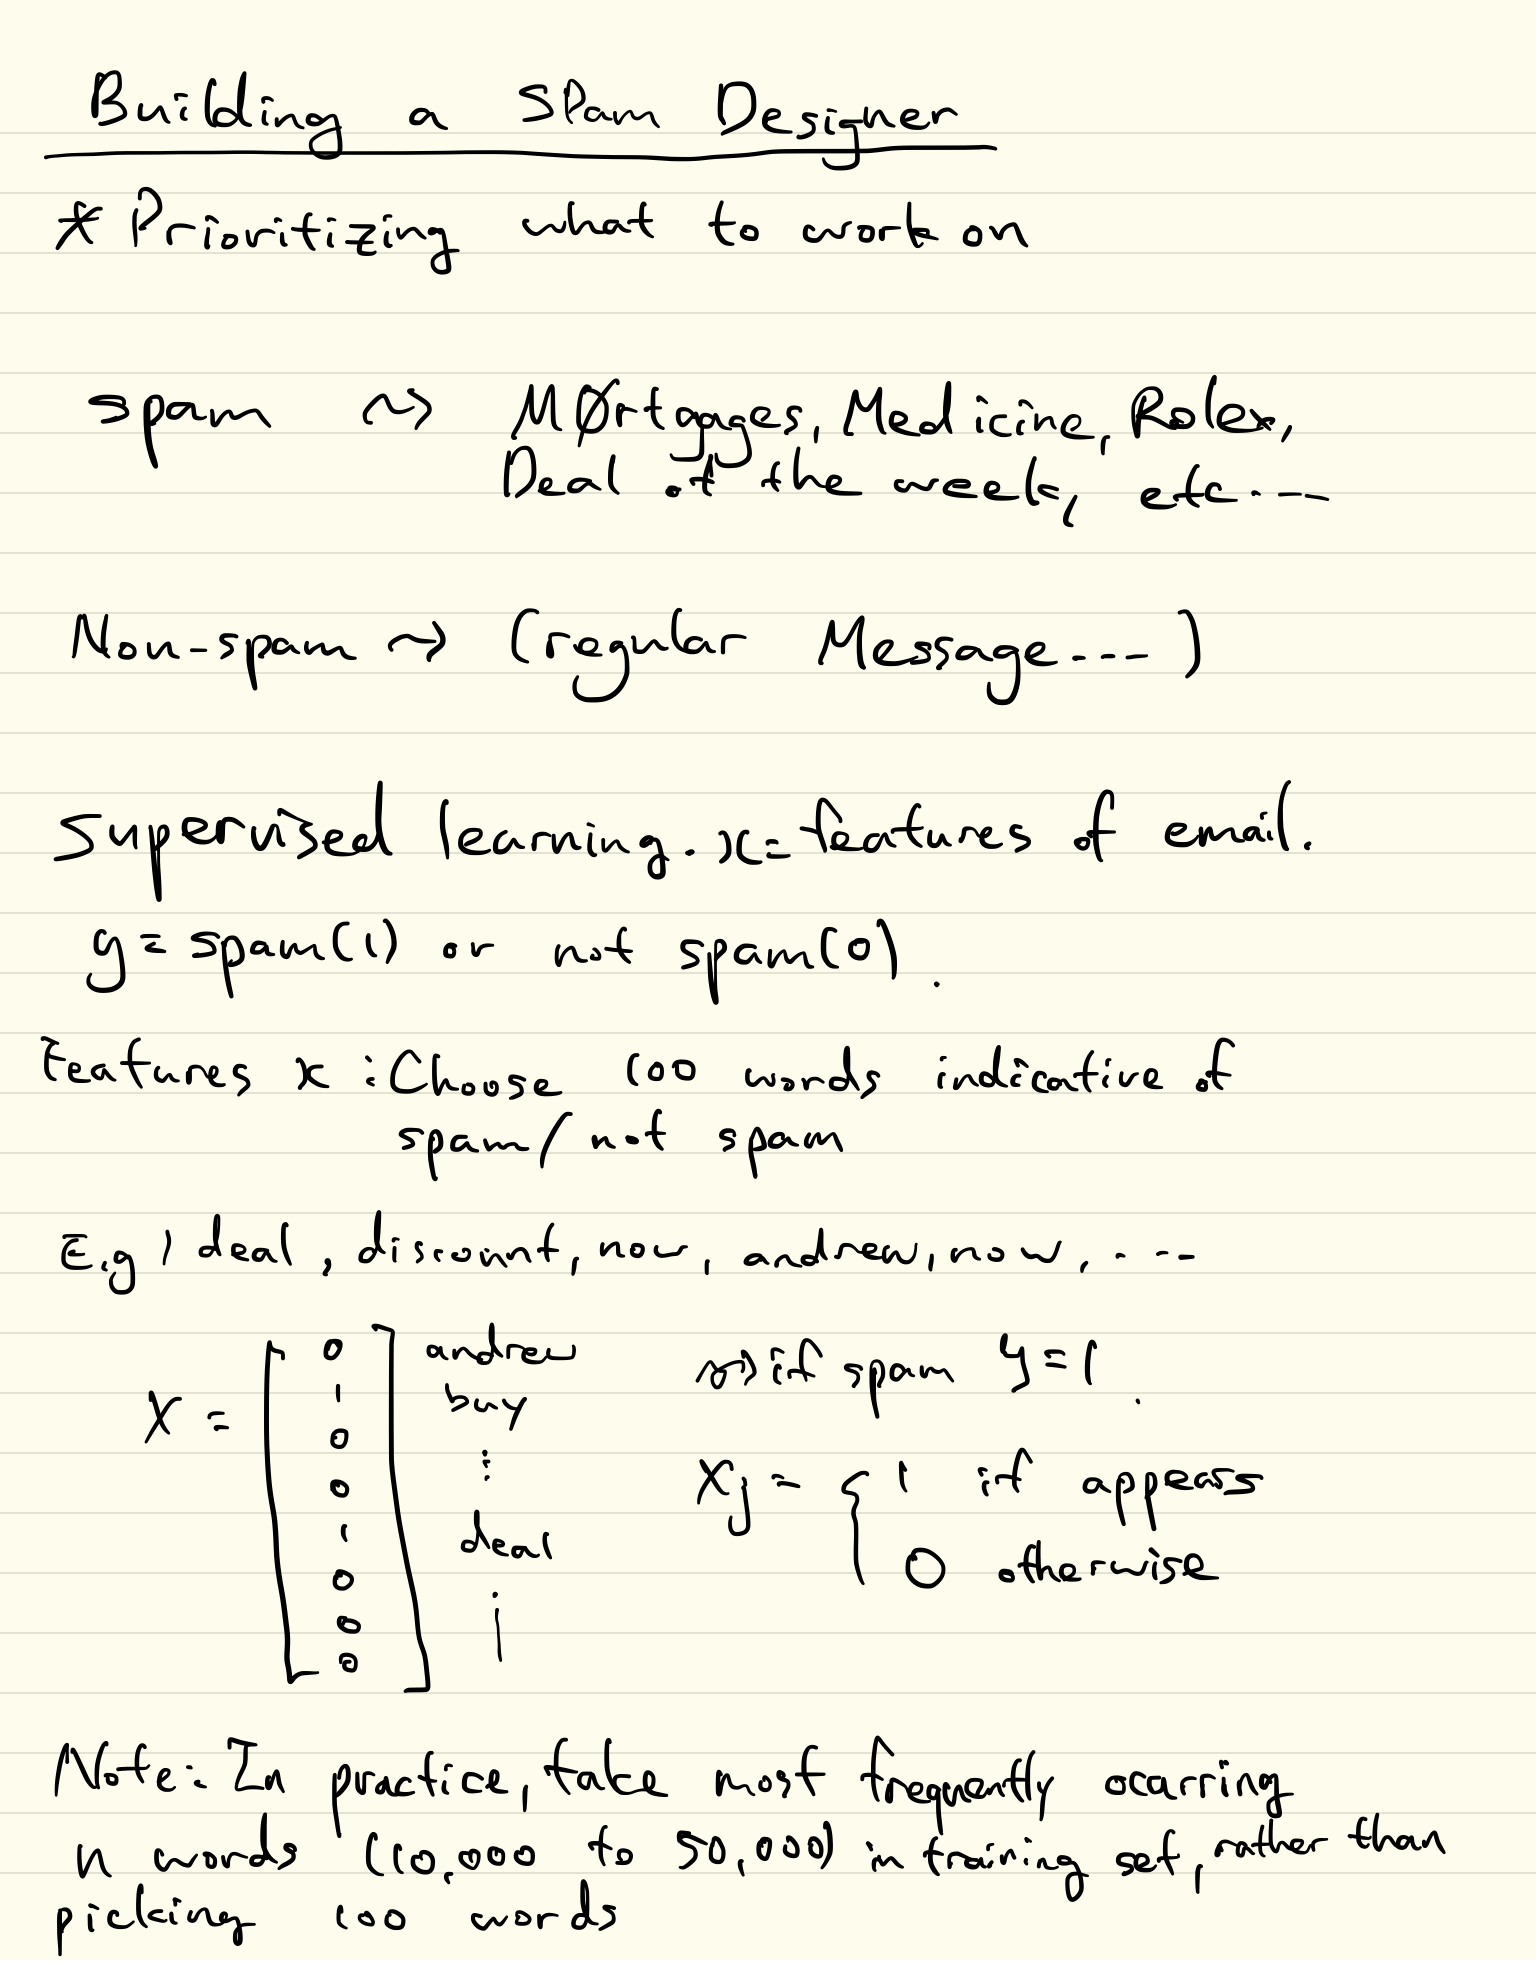 Building a Spam Designer
* Prioritizing what to work on
spam ⇝ MØrtgages, Medicine, Rolex,
Deal of the week, etc....
Non-spam ⇝ (regular Message....)
Supervised learning. x = features of email.
y = spam(1) or not spam(0).
Features x : Choose 100 words indicative of
spam/not spam
E.g) deal, discount, now, andrew, now, ....
X = [0 1 0 0 1 0 0 0] andrew buy ⋮ deal ⋮
⇝ if spam y = 1.
Xj = { 1 if appears
0 otherwise
Note: In practice, take most frequently ocarring
n words (10,000 to 50,000) in training set, rather than
picking 100 words